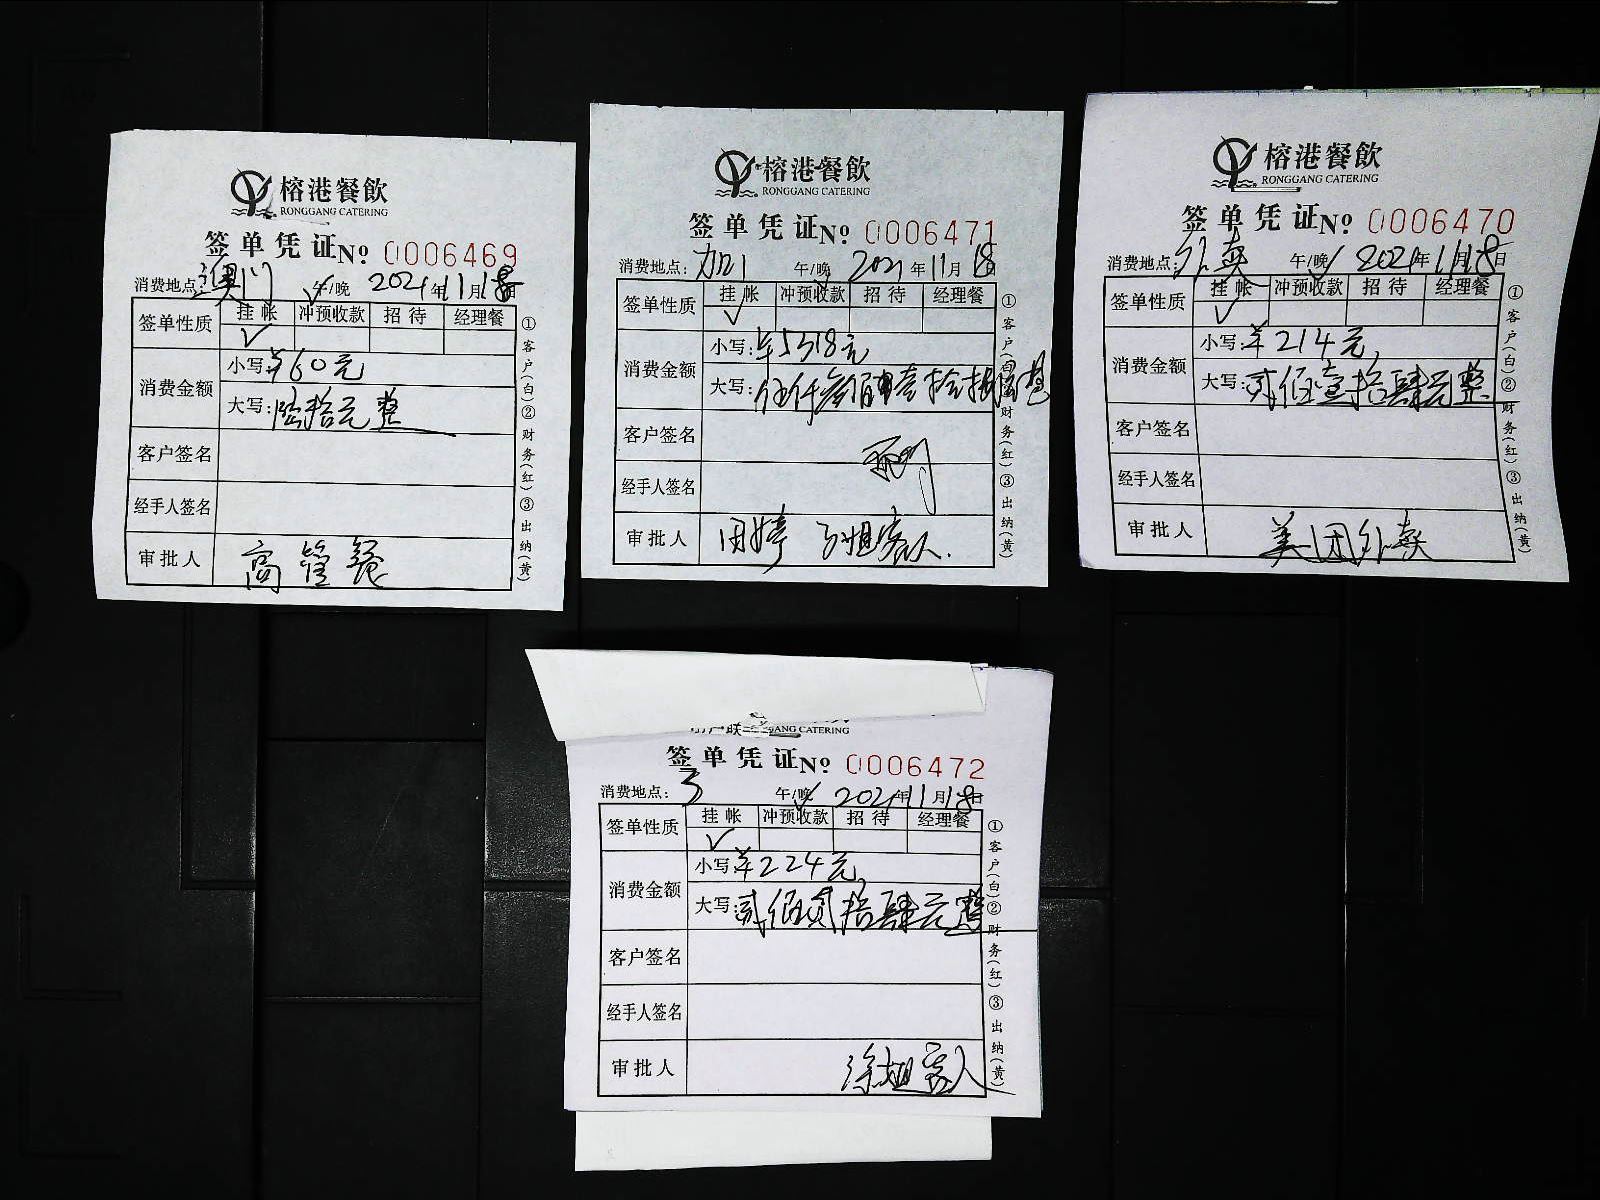 榕港餐飲
RONGGANG CATERING
签单凭证 № 0006469
消费地点: 澳门 午/晚 2021年11月18日
签单性质 挂帐 冲预收款 招待 经理餐
√
消费金额 小写: ¥60元
大写: 陆拾元整
客户签名
经手人签名
审批人 高管餐
①客户(白)②财务(红)③出纳(黄)
榕港餐飲
RONGGANG CATERING
签单凭证 № 0006471
消费地点: 午/晚 2021年11月18日
签单性质 挂帐 冲预收款 招待 经理餐
√
消费金额 小写: ¥5318元
大写: 伍仟叁佰壹拾捌元整
客户签名
经手人签名
审批人 客人.
①客户(白)②财务(红)③出纳(黄)
榕港餐飲
RONGGANG CATERING
签单凭证 № 0006470
消费地点: 外卖 午/晚 2021年11月18日
签单性质 挂帐 冲预收款 招待 经理餐
√
消费金额 小写: ¥214元
大写: 贰佰壹拾肆元整
客户签名
经手人签名
审批人 美团外卖
①客户(白)②财务(红)③出纳(黄)
RONGGANG CATERING
签单凭证 № 0006472
消费地点: 3 午/晚 2021年11月18日
签单性质 挂帐 冲预收款 招待 经理餐
√
消费金额 小写: ¥224元
大写: 贰佰贰拾肆元整
客户签名
经手人签名
审批人 徐姐客人
①客户(白)②财务(红)③出纳(黄)